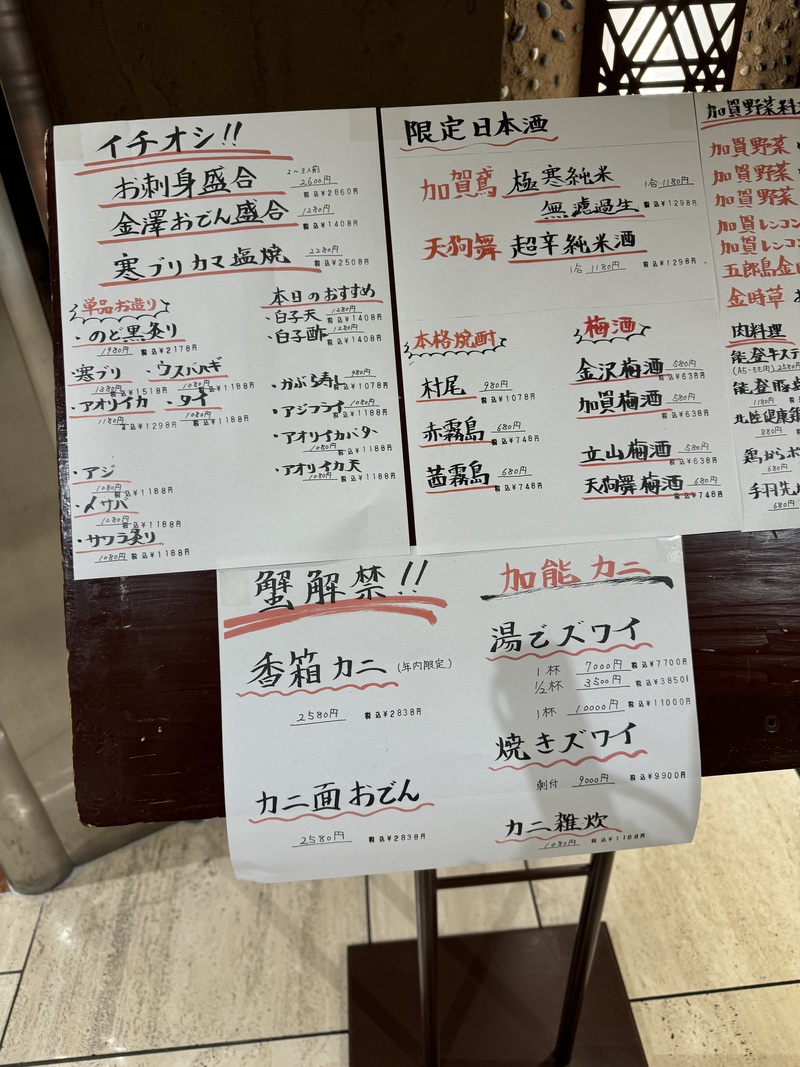 イチオシ!!
お刺身盛合 2～3人前 2600円 税込¥2860円
金澤おでん盛合 1280円 税込¥1408円
寒ブリカマ塩焼 2280円 税込¥2508円
単品お造り
・のど黒炙り
1980円 税込¥2178円
・寒ブリ
1380円 税込¥1518円
・ウスバハギ
1080円 税込¥1188円
・アオリイカ
1180円 税込¥1298円
・タイ
1080円 税込¥1188円
・アジ
1080円 税込¥1188円
・〆サバ
1080円 税込¥1188円
・サワラ炙り
1080円 税込¥1188円
本日のおすすめ
・白子天 1280円 税込¥1408円
・白子酢 1280円 税込¥1408円
・かぶら寿し 980円 税込¥1078円
・アジフライ 1080円 税込¥1188円
・アオリイカバター
1080円 税込¥1188円
・アオリイカ天
1080円 税込¥1188円
限定日本酒
加賀鳶 極寒純米
無濾過生 1合1180円 税込¥1298円
天狗舞 超辛純米酒
1合 1180円 税込¥1298円
本格焼酎
村尾 980円 税込¥1078円
赤霧島 680円 税込¥748円
茜霧島 680円 税込¥748円
梅酒
金沢梅酒 580円 税込¥638円
加賀梅酒 580円 税込¥638円
立山梅酒 580円 税込¥638円
天狗舞梅酒 680円 税込¥748円
加賀野菜料
加賀野菜
加賀野菜
加賀野菜
加賀レンコン
加賀レンコン
五郎島金
金時草
肉料理
能登牛ステ
(A5-ヒモ肉) 2580円
能登豚
1180円
北陸健康鶏
880円
鶏からポ
680円
手羽先
680円
蟹解禁!!
香箱カニ (年内限定)
2580円 税込¥2838円
カニ面おでん
2580円 税込¥2838円
加能カニ
湯でズワイ
1杯 7000円 税込¥7700円
1/2杯 3500円 税込¥3850円
1杯 10000円 税込¥11000円
焼きズワイ
刺付 9000円 税込¥9900円
カニ雑炊
1080円 税込¥1188円